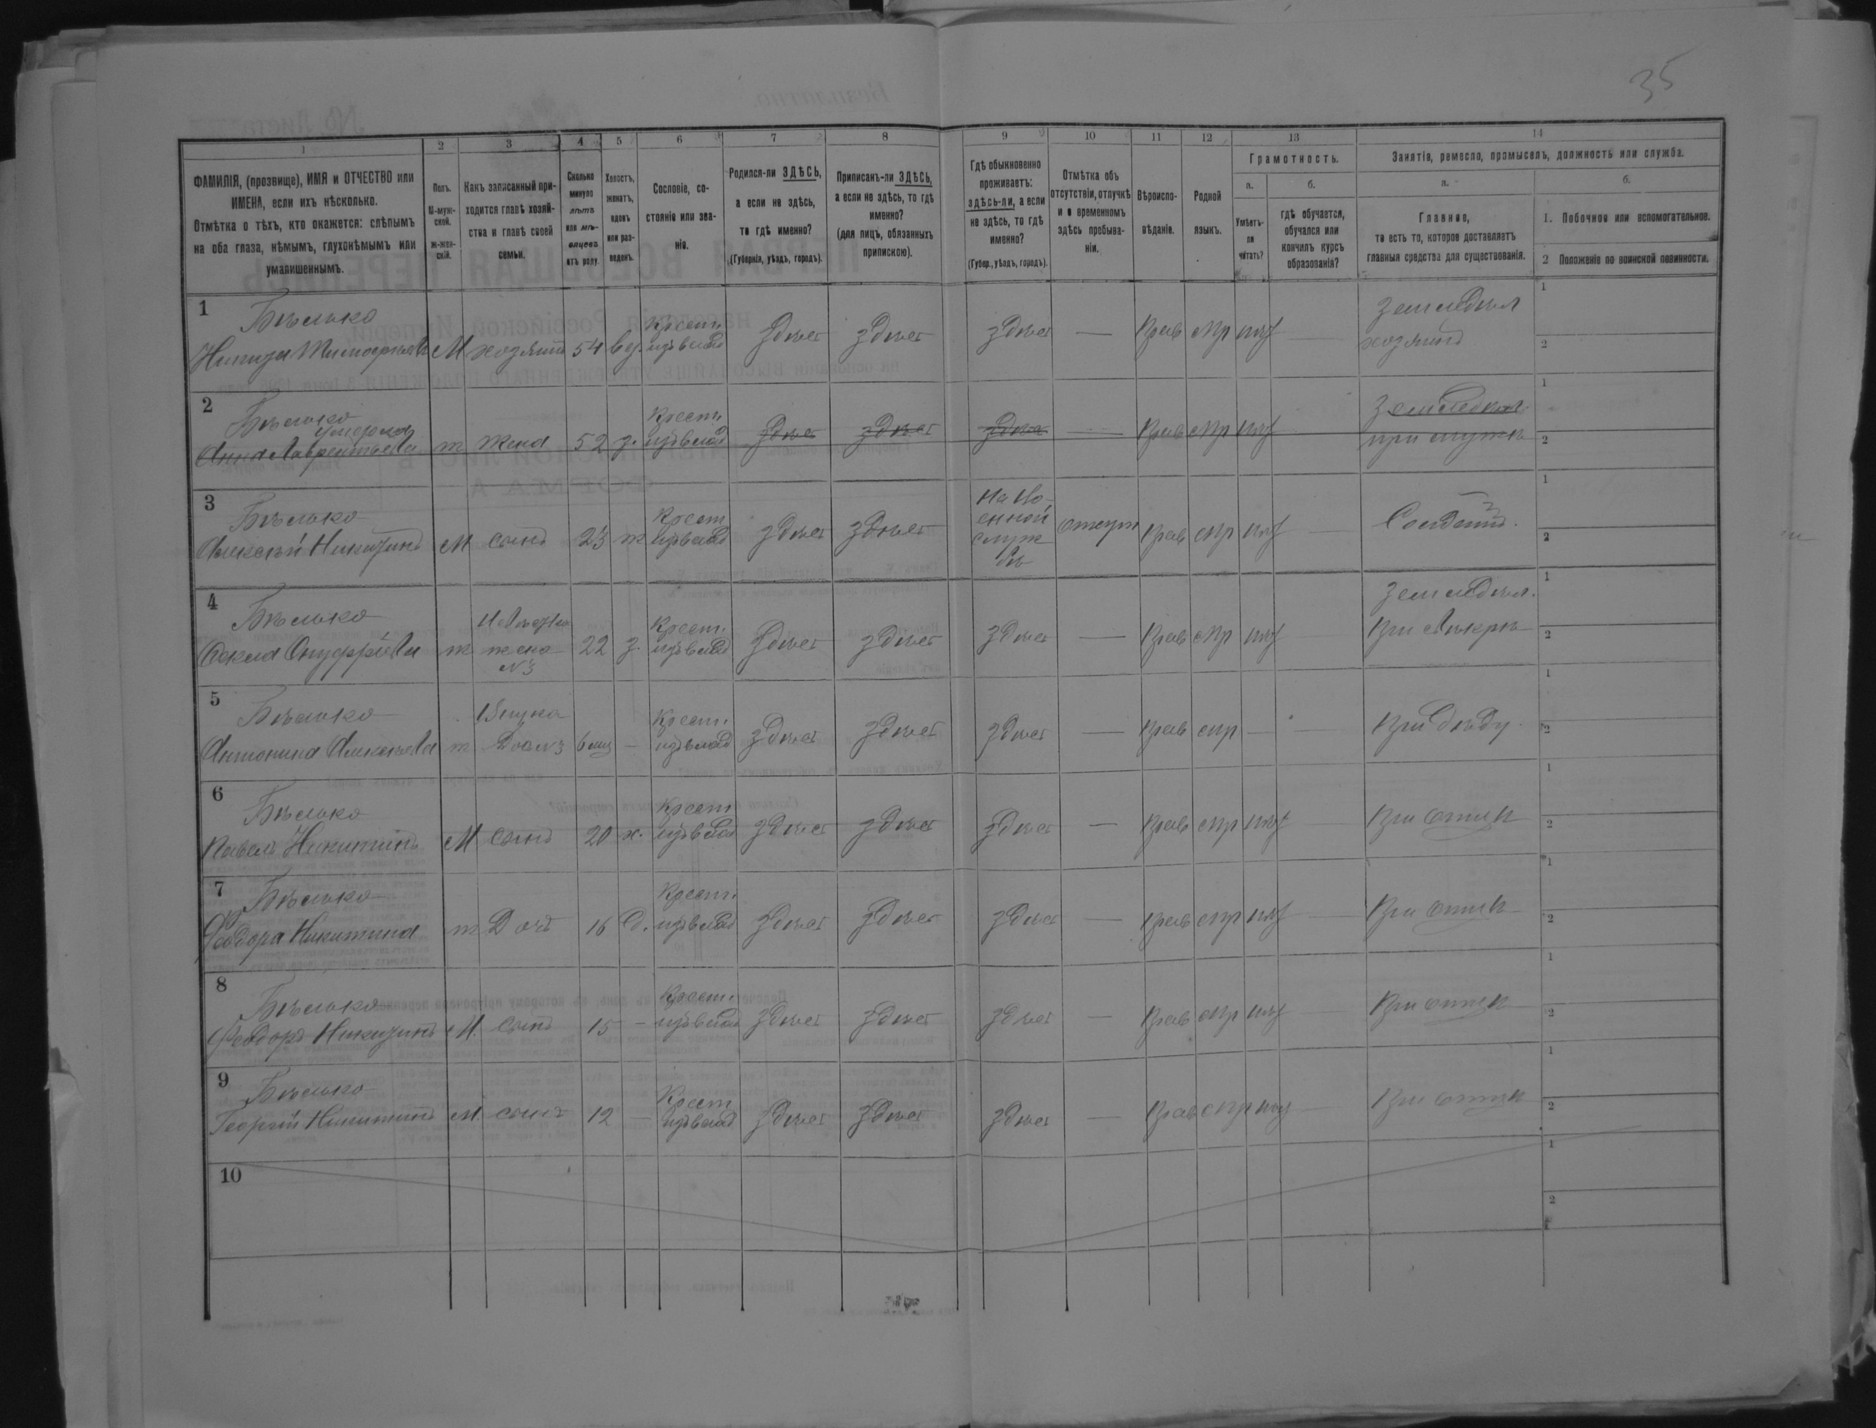 35
1
2
3
4
5
6
7
8
9
10
11
12
13
14
ФАМИЛІЯ, (прозвище), ИМЯ и ОТЧЕСТВО или
ИМЕНА, если ихъ нѣсколько.
Отмѣтка о тѣхъ, кто окажется: слѣпымъ
на оба глаза, нѣмымъ, глухонѣмымъ или
умалишеннымъ.
Полъ.
М-муж-
ской.
Ж-жен-
скій.
Какъ записанный при-
ходится главѣ хозяй-
ства и главѣ своей
семьи.
Сколько
минуло
лѣтъ
или мѣ-
сяцевъ
отъ роду.
Холостъ,
женатъ,
вдовъ
или раз-
веденъ.
Сословіе, со-
стояніе или зва-
ніе.
Родился-ли ЗДѢСЬ,
а если не здѣсь,
то гдѣ именно?
(Губернія, уѣздъ, городъ).
Приписанъ-ли ЗДѢСЬ,
а если не здѣсь, то гдѣ
именно?
(для лицъ, обязанныхъ
припискою).
Гдѣ обыкновенно
проживаетъ:
здѣсь-ли, а если
не здѣсь, то гдѣ
именно?
(Губер., уѣздъ, городъ).
Отмѣтка объ
отсутствіи, отлучкѣ
и о временномъ
здѣсь пребыва-
ніи.
Вѣроиспо-
вѣданіе.
Родной
языкъ.
Грамотность.
а.
б.
Умѣетъ-
ли
читать?
гдѣ обучается,
обучался или
кончилъ курсъ
образованія?
Занятія, ремесло, промыселъ, должность или служба.
а.
б.
Главное,
то есть то, которое доставляетъ
главныя средства для существованія.
1. Побочное или вспомогательное.
2 Положеніе по воинской повинности.
1
Бѣлько
М хозяинъ 54 Крест. здѣсь здѣсь здѣсь — Прав
Земледѣл
хозяинъ
2
Бѣлько
умерла
Анна Лаврентьева ж жена 52 з. Крест. здѣсь здѣсь здѣсь — Прав
Земледѣл.
при мужѣ
3
Бѣлько
Алексѣй М сынъ 23 ж Крест здѣсь здѣсь
На Во-
енной
служ
бѣ
Прав
Солдатъ.
4
Бѣлько
Онуфріева ж Невѣстка
жена
№3
22 з. Крест. здѣсь здѣсь здѣсь — Прав
Земледѣл.
При свекрѣ
5
Бѣлько
Антонина Алексѣева ж Внучка
Дочь №3
6 мц — Крест. здѣсь здѣсь здѣсь — Прав — —
При дѣду.
6
Бѣлько
Павелъ Никитинъ М сынъ 20 х. Крест. здѣсь здѣсь здѣсь — Прав
При отцѣ
7
Бѣлько
Никитина ж Дочь 16 д. Крест. здѣсь здѣсь здѣсь — Прав
При отцѣ
8
Бѣлько
Ѳеодоръ М. сынъ 15 — Крест. здѣсь здѣсь здѣсь — Прав
При отцѣ
9
Бѣлько
Георгій Никитинъ М. сынъ 12 — Крест здѣсь здѣсь здѣсь — Прав
При отцѣ
10